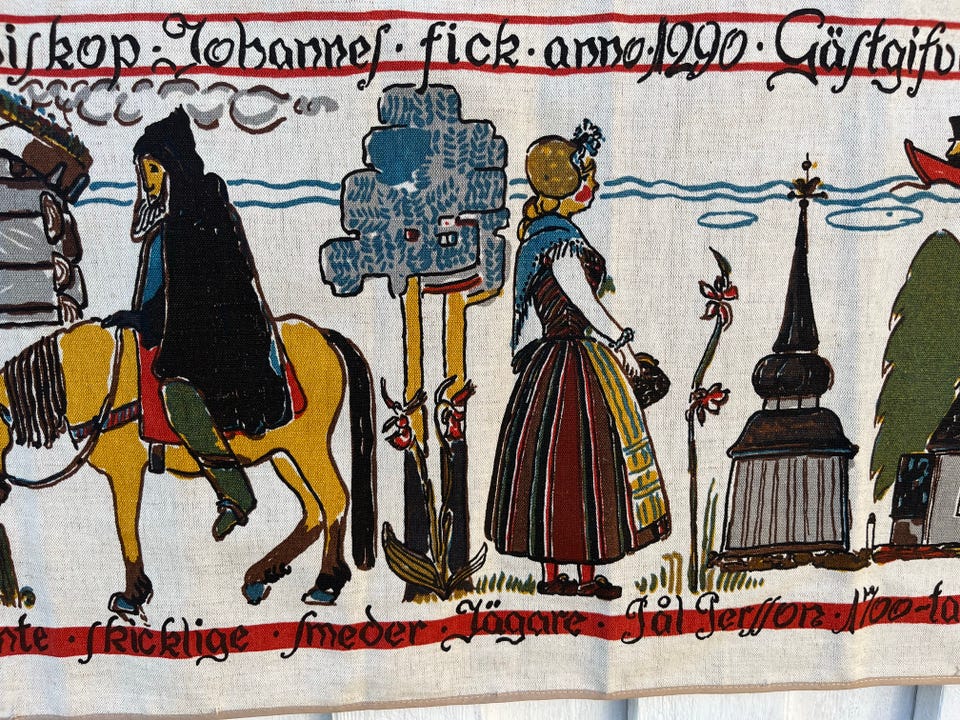 iskop · Johannes · fick · anno · 1290 · Gästgifv
nte · skicklige · smeder · Jägare · Pål Persson · 1700-ta